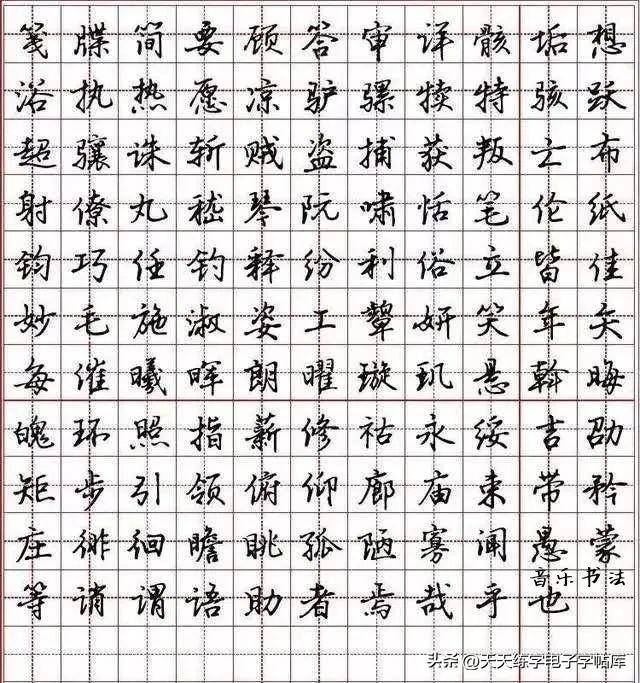 笺牒简要顾答审详骸垢想
浴执热愿凉驴骡犊特骇跃
超骧诛斩贼盗捕获叛亡布
射僚丸嵇琴阮啸恬笔伦纸
钧巧任钓释纷利俗立皆佳
妙毛施淑姿工颦妍笑年矢
每催曦晖朗曜璇玑悬斡晦
魄环照指薪修祜永绥吉劭
矩步引领俯仰廊庙束带矜
庄徘徊瞻眺孤陋寡闻愚蒙
等诮谓语助者焉哉乎也
音乐书法
头条@天天练字电子字帖库